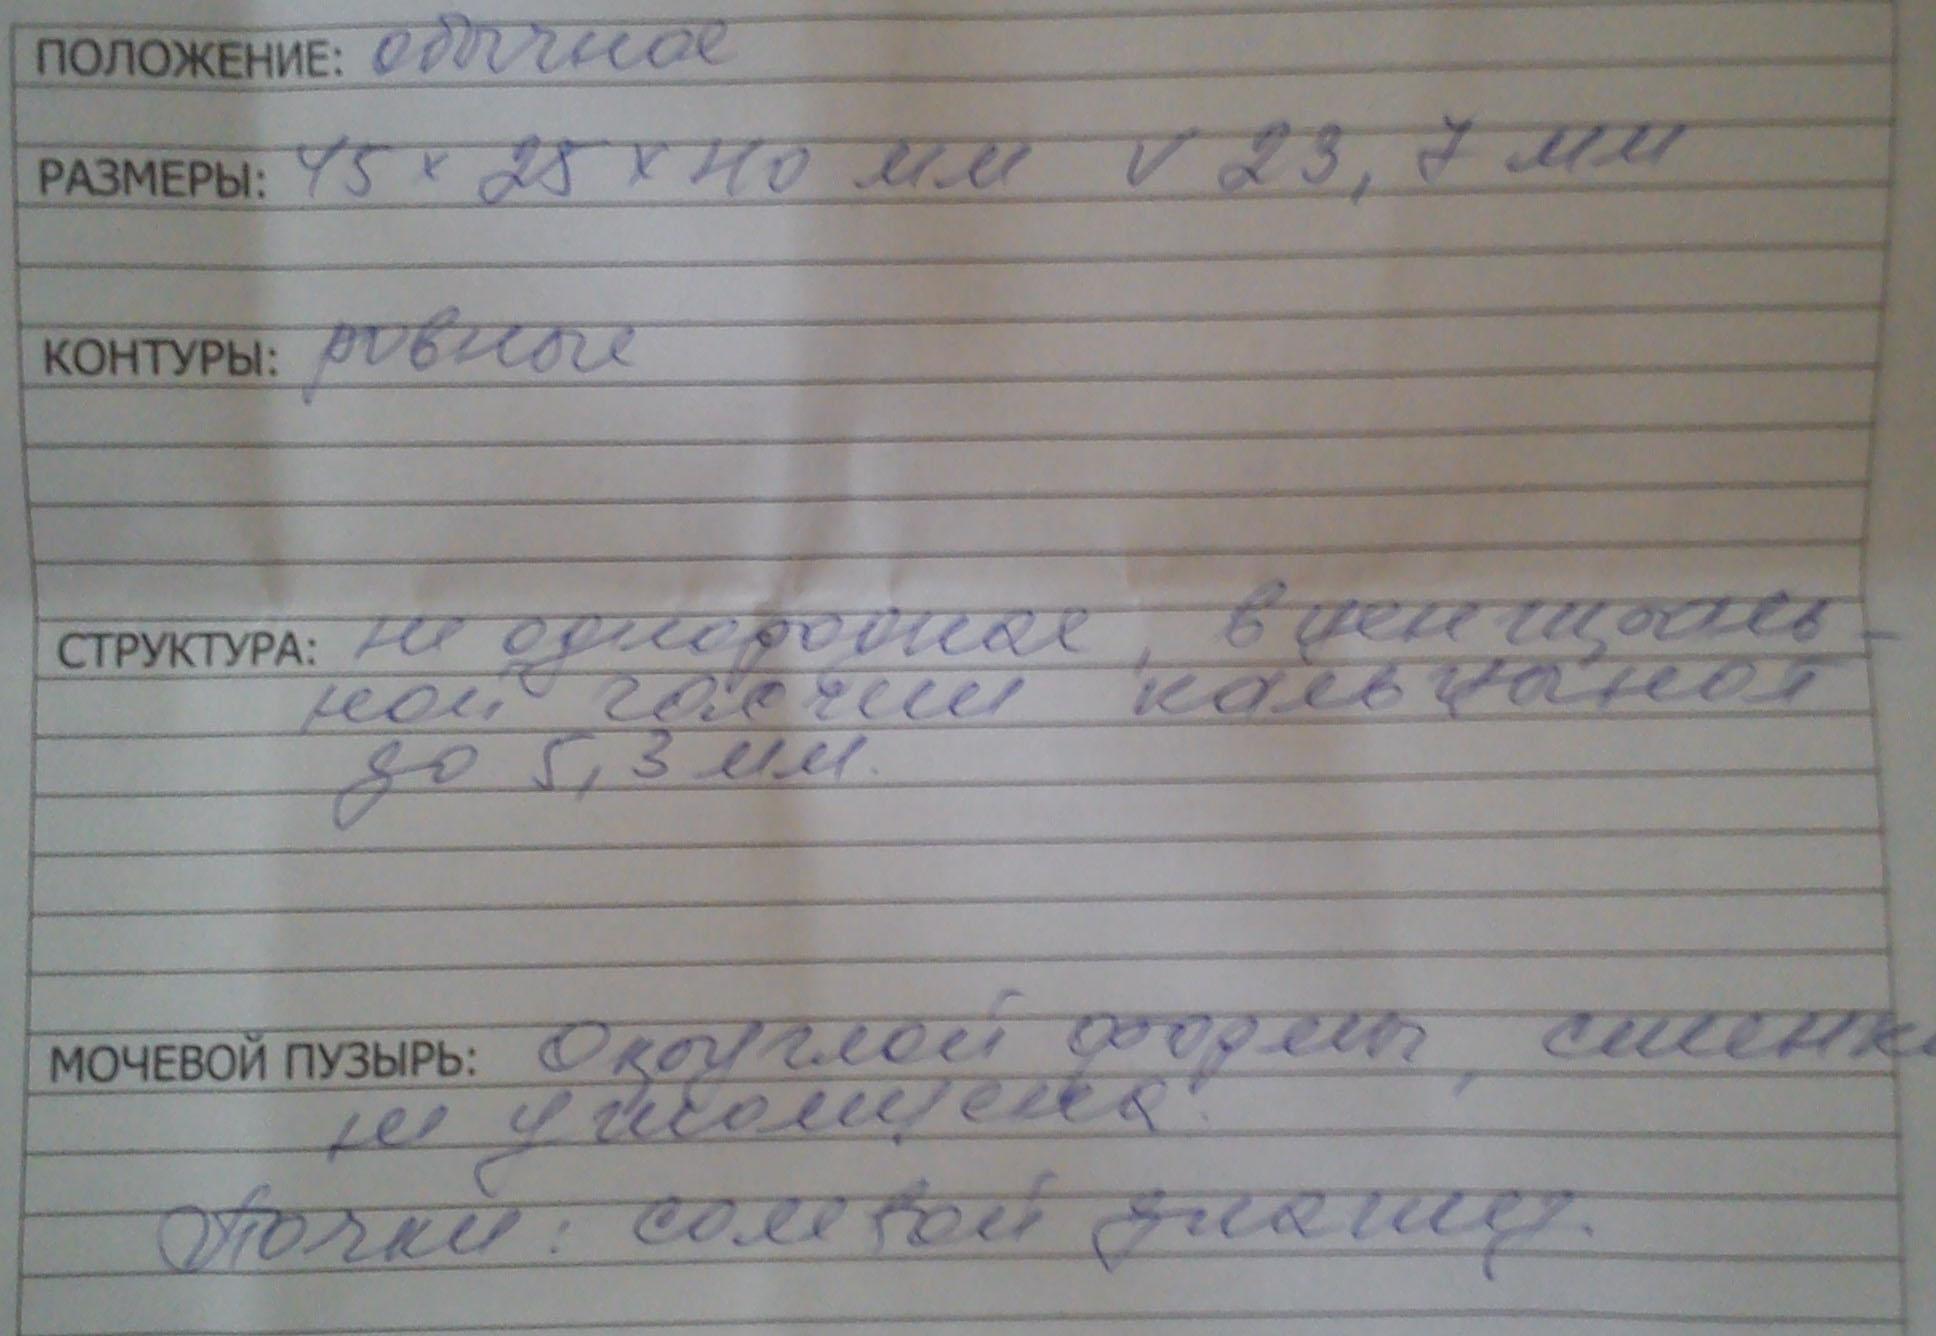 ПОЛОЖЕНИЕ: обычное
РАЗМЕРЫ: 45 х 25 х 40 мм V 23,7 мм
КОНТУРЫ: ровные
СТРУКТУРА: не однородная, в централь-
ной части кальцинат
до 5,3 мм.
МОЧЕВОЙ ПУЗЫРЬ: Округлой формы, стенка
не утолщена.
Почки: солевой диатез.